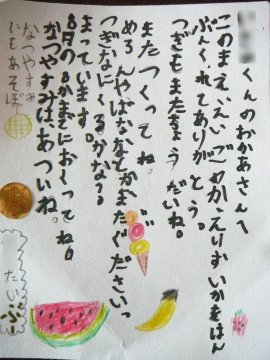 くんのおかあさんへ
このまえ、えいごのかえりすいかをはん
ぶんくれてありがとう。
つぎもまたちょうだいね。
またつくってね。
めろんやばななとかまたください。
つぎなにくるかな？
まっています。
8月の8かまでにおくってね。
なつやすみはあついね。
なつやすみ
にもあそぼ